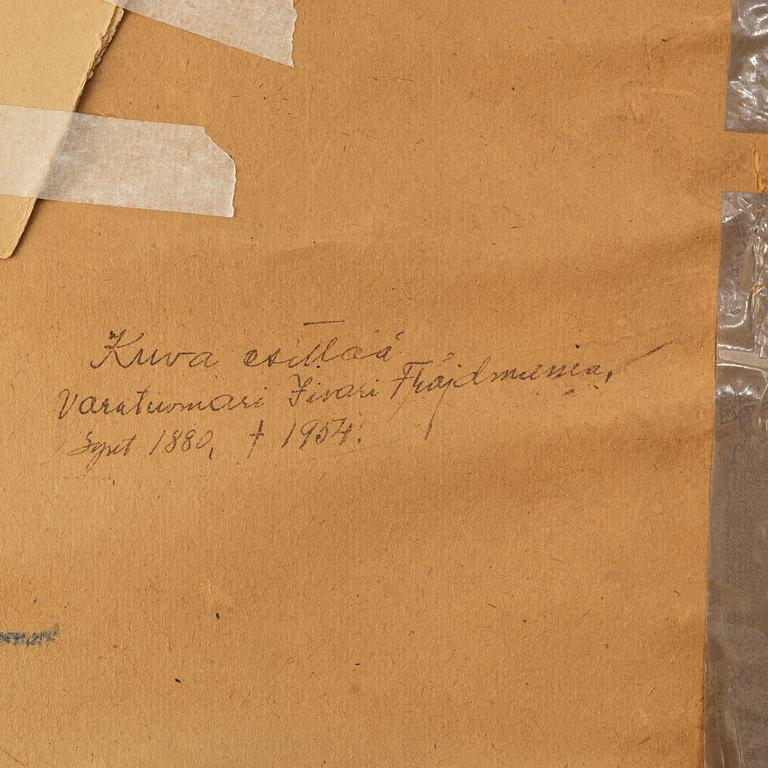 Kuva esittää
Varatuomari Iivari
Synt 1880, † 1954.